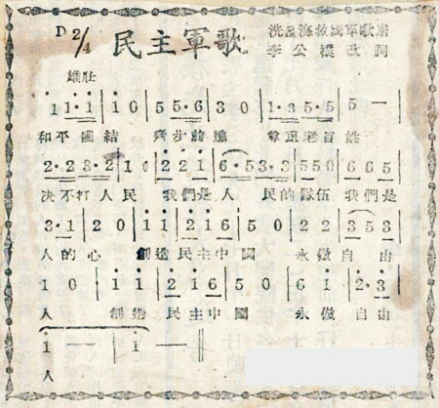 D 2/4 民主軍歌
冼星海救國軍歌譜
李公樸改詞
雄壯
1 1·1 | 1 0 | 5 5·6 | 3 0 | 1·3 5·5 | 5 —
和平團結 齊步前進 尊重老百姓
2·2 3·2 | 1 0 | 2 2 1 | 6·5 3·3 | 5 5 0 | 6 6 5
决不打人民 我們是人民的隊伍 我們是
3·1 | 2 0 | 0 1 1 | 2 1 6 | 5 0 | 2 2 | 3 5 3
人的心 創造民主中國 永做自由
1 0 | 1 1 | 2 1 6 | 5 0 | 6 1 | 2·3
人 創造民主中國 永做自由
1 — | 1 — ‖
人